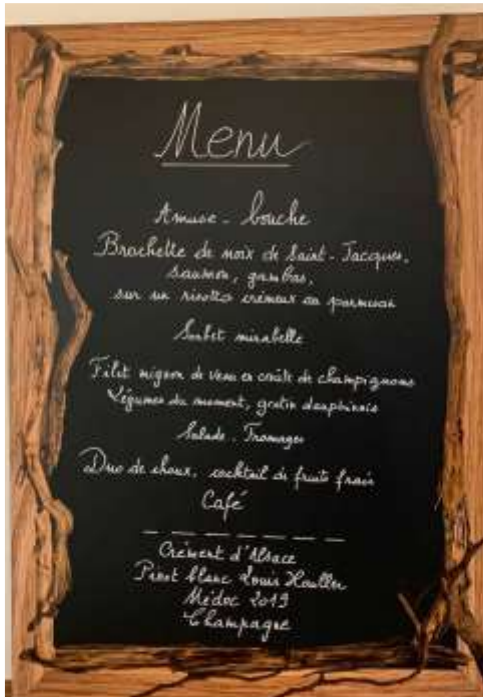 Menu
Amuse-bouche
Brochette de noix de Saint-Jacques,
saumon, gambas,
sur un risotto crémeux au parmesan
Sorbet mirabelle
Filet mignon de veau en croûte de champignons
Légumes du moment, gratin dauphinois
Salade - Fromages
Duo de choux, cocktail de fruits frais
Café
Crémant d'Alsace
Pinot blanc Louis
Médoc 2019
Champagne